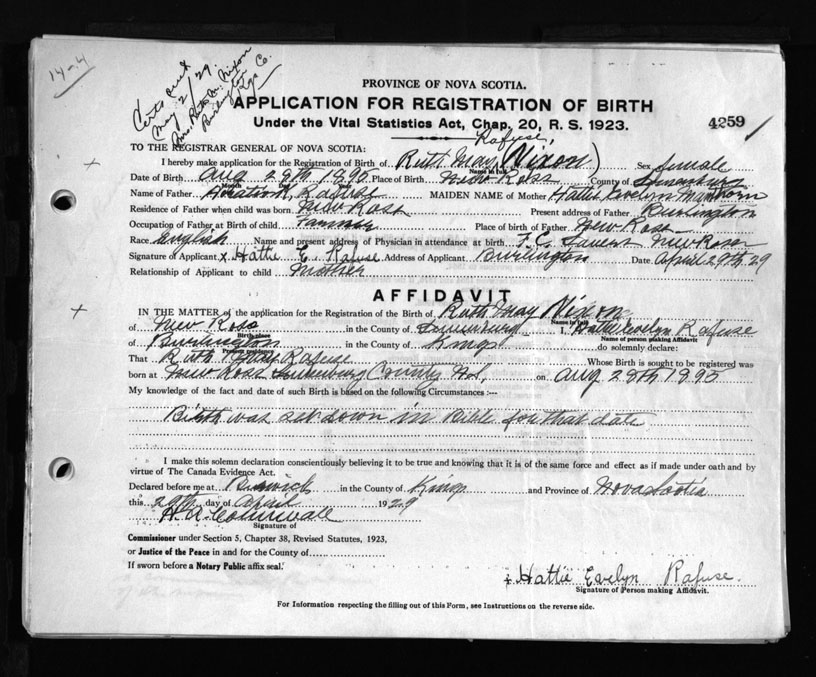 14-4
Certs sent
May 2/29.
Mrs. Ruth M. Nixon
Burlington
Kgs Co.
PROVINCE OF NOVA SCOTIA.
APPLICATION FOR REGISTRATION OF BIRTH
4259
Under the Vital Statistics Act, Chap. 20, R. S. 1923.
Rafuse,
TO THE REGISTRAR GENERAL OF NOVA SCOTIA:
I hereby make application for the Registration of Birth of Ruth May (Nixon) Sex female
Name in full
Date of Birth Aug 28th 1895 Place of Birth New Ross County of Lunenburg
Month Day Year
Name of Father Rafuse MAIDEN NAME of Mother Hattie Evelyn
Residence of Father when child was born New Ross Present address of Father Burlington
Occupation of Father at Birth of child Farmer Place of birth of Father New Ross
Race English Name and present address of Physician in attendance at birth New Ross
Signature of Applicant x Hattie E. Rafuse Address of Applicant Burlington Date April 29th 29
Relationship of Applicant to child Mother
AFFIDAVIT
IN THE MATTER of the application for the Registration of the Birth of Ruth May Nixon
Name in full
of New Ross in the County of Lunenburg I, Hattie Evelyn Rafuse
Birth place Name of person making Affidavit
of Burlington in the County of Kings do solemnly declare:
Present residence
That Ruth May Rafuse Whose Birth is sought to be registered was
born at New Ross Lunenburg County N.S, on Aug 28th 1895
My knowledge of the fact and date of such Birth is based on the following Circumstances :—
Birth was set down in Bible for that date
I make this solemn declaration conscientiously believing it to be true and knowing that it is of the same force and effect as if made under oath and by
virtue of The Canada Evidence Act.
Declared before me at Berwick in the County of Kings and Province of Nova Scotia
this 29th day of April 1929
Signature of
Commissioner under Section 5, Chapter 38, Revised Statutes, 1923,
or Justice of the Peace in and for the County of
If sworn before a Notary Public affix seal.
x Hattie Evelyn Rafuse.
Signature of Person making Affidavit.
For Information respecting the filling out of this Form, see Instructions on the reverse side.